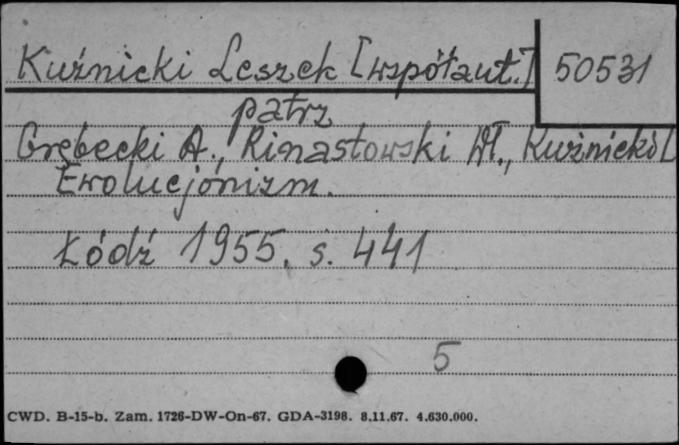 Kuźnicki Leszek [współaut.] 50531
patrz
Grębecki A., Kinastowski Wł., Kuźnicki L
Ewolucjonizm.
Łódź 1955, s. 441
5
CWD. B-15-b. Zam. 1726-DW-On-67. GDA-3198. 8.11.67. 4.630.000.